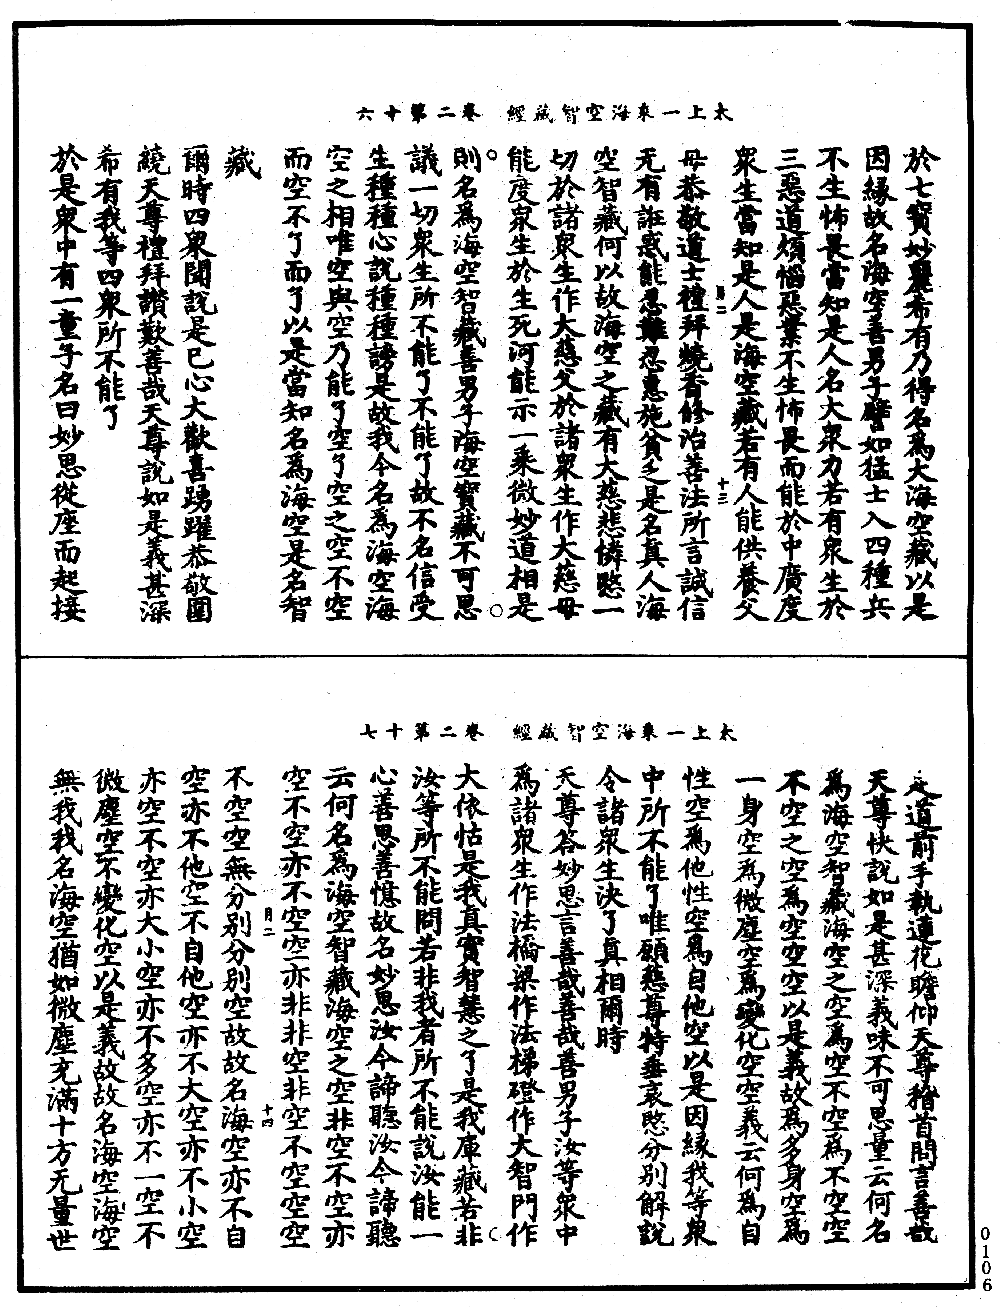 太上一乘海空智藏經　卷二第十六
於七寶妙麗希有乃得名爲大海空藏以是
因緣故名海空善男子譬如猛士入四種兵
不生怖畏當知是人名大衆力若有衆生於
三惡道煩惱惡業不生怖畏而能於中廣度
衆生當知是人是海空藏若有人能供養父
母恭敬道士禮拜燒香修治善法所言誠信
无有誑惑能忍難忍惠施貧乏是名真人海
空智藏何以故海空之藏有大慈悲憐愍一
切於諸衆生作大慈父於諸衆生作大慈母
能度衆生於生死河能示一乘微妙道相是
則名爲海空智藏善男子海空寶藏不可思
議一切衆生所不能了不能了故不名信受
生種種心說種種謗是故我今名爲海空海
空之相唯空與空乃能了空了空之空不空
而空不了而了以是當知名爲海空是名智
藏
爾時四衆聞說是已心大歡喜踴躍恭敬圍
繞天尊禮拜讃歎善哉天尊說如是義甚深
希有我等四衆所不能了
於是衆中有一童子名曰妙思從座而起接
月二
十三
太上一乘海空智藏經　卷二第十七
足道前手執蓮花瞻仰天尊稽首問言善哉
天尊快說如是甚深義味不可思量云何名
爲海空智藏海空之空爲空不空爲不空空
不空之空爲空空空以是義故爲多身空爲
一身空爲微塵空爲變化空空義云何爲自
性空爲他性空爲自他空以是因緣我等衆
中所不能了唯願慈尊特垂哀愍分別解說
令諸衆生決了真相爾時
天尊答妙思言善哉善哉善男子汝等衆中
爲諸衆生作法橋梁作法梯磴作大智門作
大依怙是我真實智慧之了是我庫藏若非
汝等所不能問若非我者所不能說汝能一
心善思善憶故名妙思汝今諦聽汝今諦聽
云何名爲海空智藏海空之空非空不空亦
空不空亦不空空亦非非空非空不空空空
不空空無分別分別空故故名海空亦不自
空亦不他空不自他空亦不大空亦不小空
亦空不空亦大小空亦不多空亦不一空不
微塵空不變化空以是義故故名海空海空
無我我名海空猶如微塵充滿十方无量世
月二
十四
0106